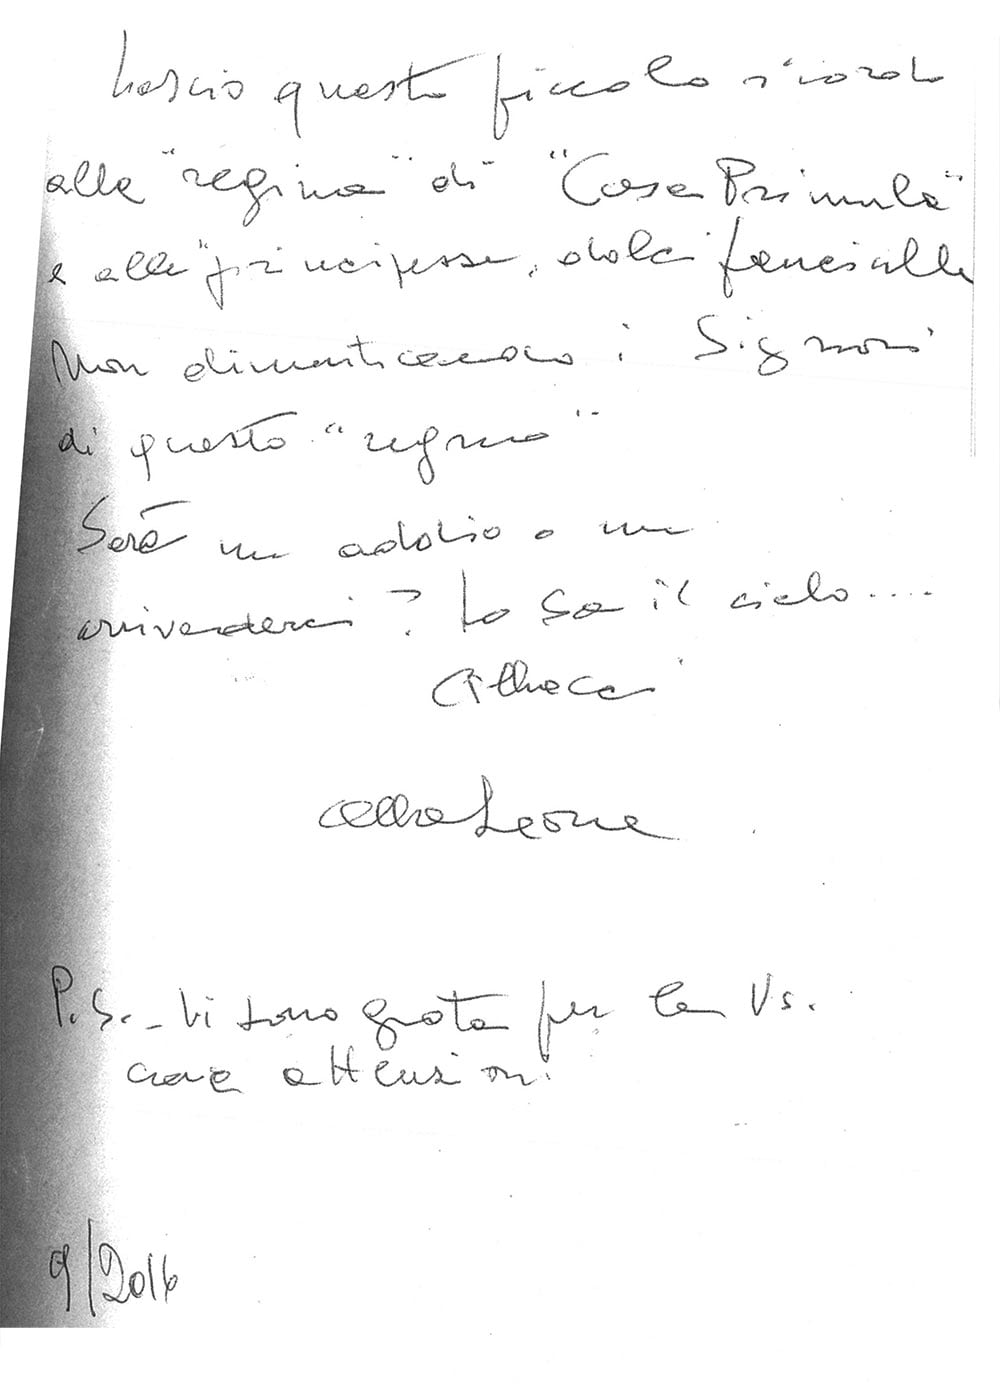 Lascio questo piccolo ricordo
alla "regina" di "Casa Primula"
e alle "principesse, dolci fanciulle
Non dimenticando i Signori
di questo "regno"
Sarà un addio o un
arrivederci? Lo sa il cielo....
Leone
P.S. - Vi sono grata per le Vs.
care attenzioni.
9/2016